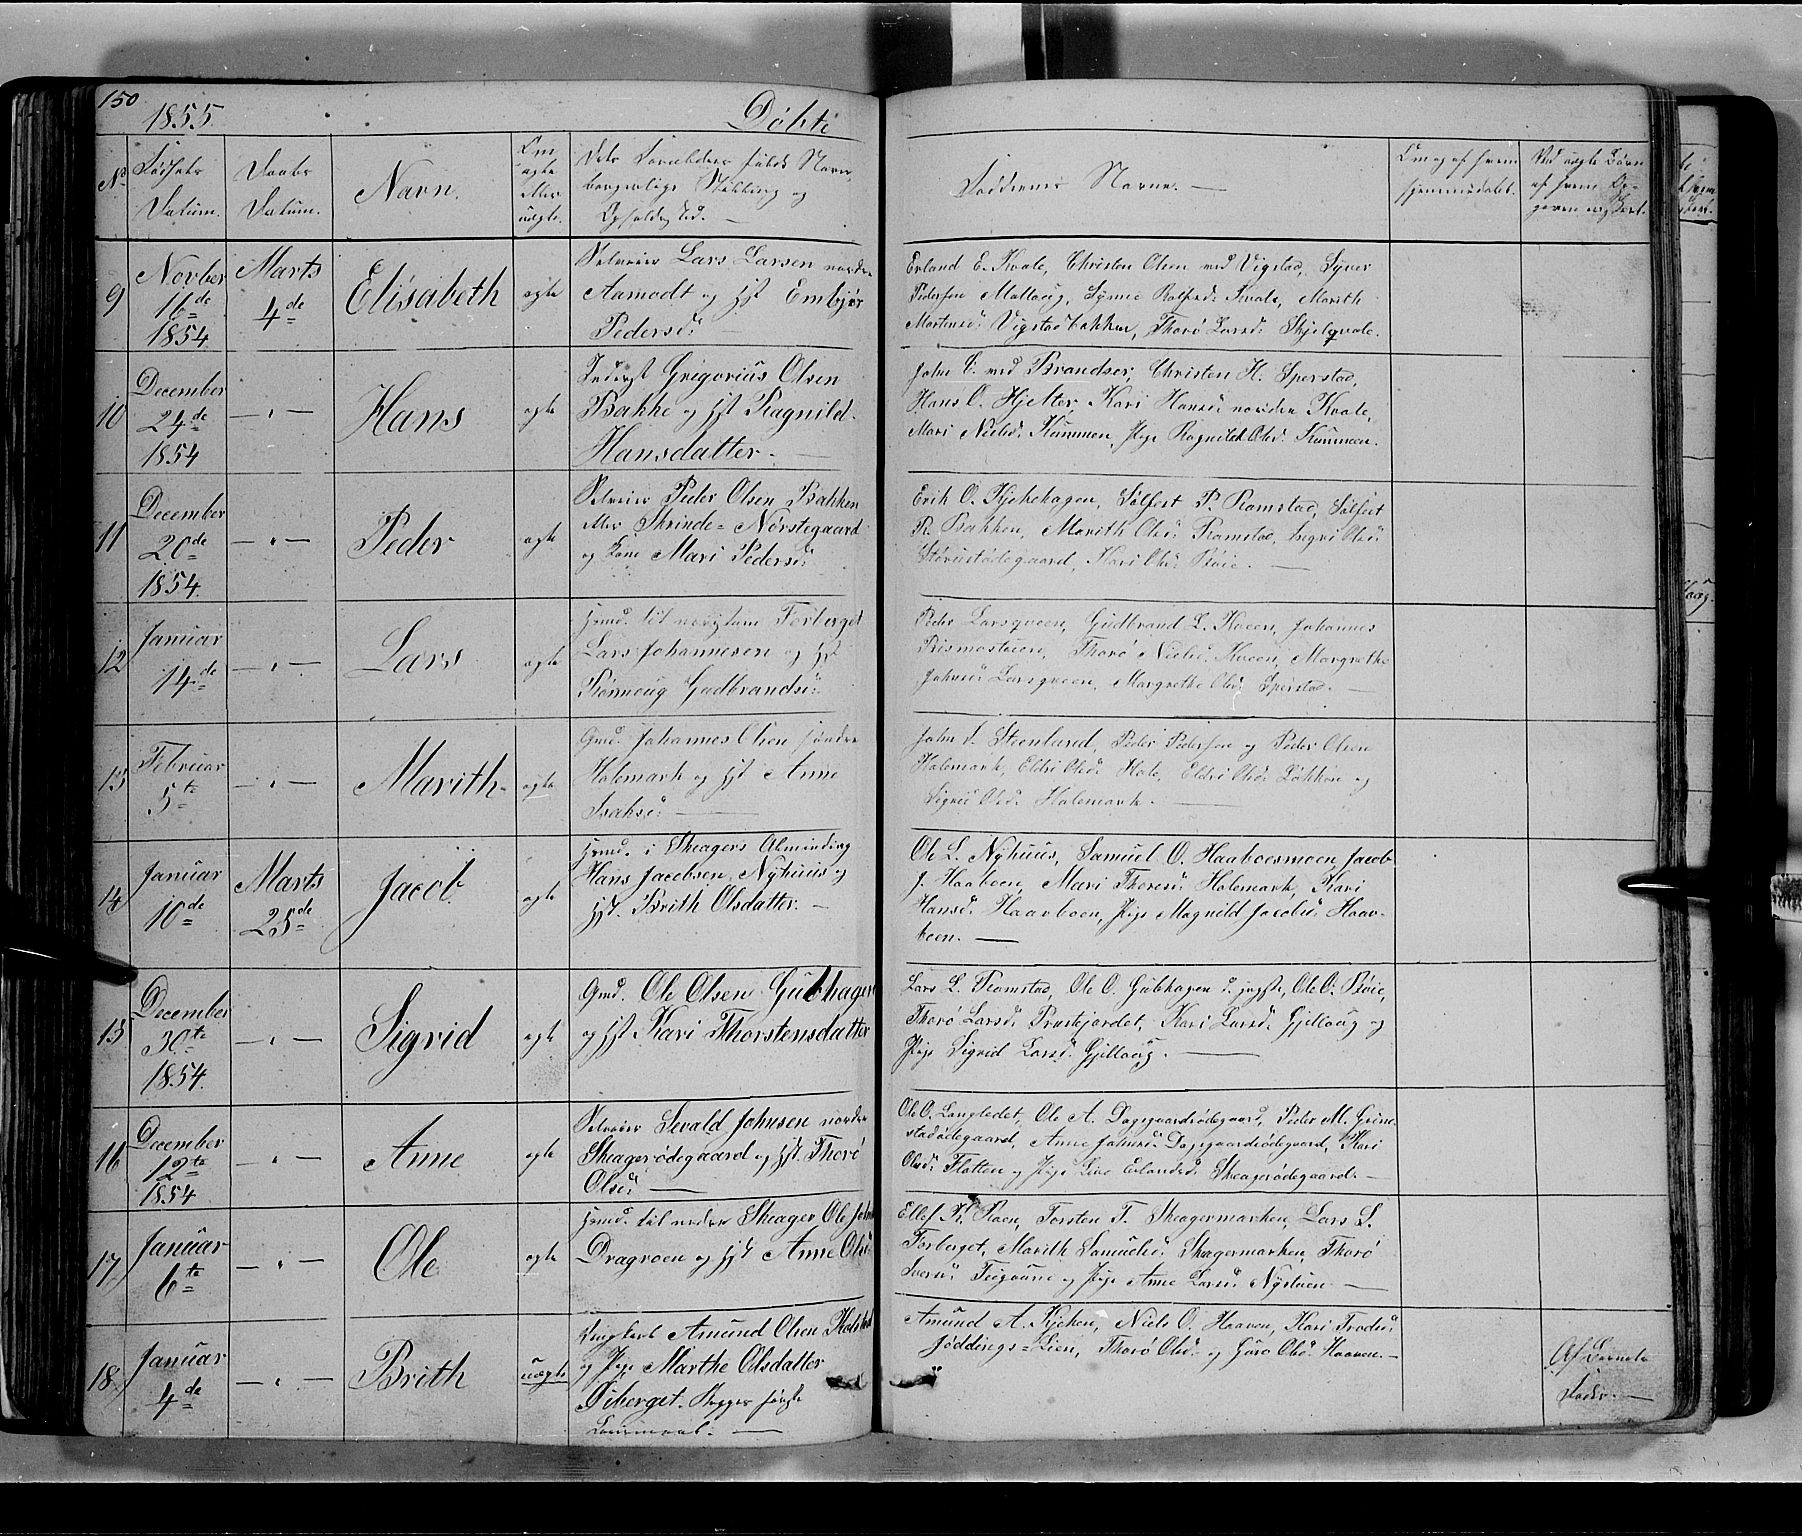 150
1855.
Døbte
No
Fødsels
Datum.
Daabs
Datum.
Navn.
Om
ægte
eller
uægte.
Dets Forældres fulde Navn,
borgerlige Stilling og
Opholdssted. —
Faddernes Navne. —
Om og af hvem
hjemmedøbt.
Ved uægte Børn
af hvem Op-
gaven er skeet.
9
Novber
16de
1854
Marts
4de
Elisabeth
ægte
Selveier Lars Larsen nordre
Aamodt og Hst Embjør
Pedersd:
Erland E. Kvale, Christen Olsen ved Vigstad, Syver
Pedersen Melloug, Synne Rolfsd: Kvale, Marith
Mortensd: Vigstadbakken, Thorø Larsd: Skjelqvale.
10
December
24de
1854
— " —
Hans
ægte
Inderst Gregorius Olsen
Bakke og Hst Ragnild
Hansdatter. —
John C. ved Brandser, Christen H. Sperstad,
Hans O. Hjelter, Kari Hansd: nordre Kvale,
Mari Nielsd: Kummen, Pige Ragnild Olsd: Kummen.
11
December
20de
1854.
— " —
Peder
ægte
Selveier Peder Olsen Bakken
eller Skrinde-Nørstegaard
og Kone Mari Pedersd:
Erik O. Kjekehagen, Sølfest P. Ramstad, Sølfest
R. Bakken, Marith Olsd: Ramstad, Ingri Olsd:
Kari Olsd: Bøie. —
12
Januar
14de
— " —
Lars
ægte
Huusmd. til
Lars Johannesen og Hst
Rønnoug Gudbrandsd:
Peder Larsqveen, Gudbrand L. Kveen, Johannes
Thorø Nielsd: Kveen, Margrethe
Johnsd: Larsqveen, Margrethe Olsd: Sperstad. —
13
Februar
5te
— " —
Marith
ægte
Gmd. Johannes Olsen søndre
Holemark og Hst Anne
Isaksd: —
John S. Steenlund, Peder Pedersen og Peder Olsen
Holemark, Eldri Olsd: Hole, Eldri Olsd: Løkken og
Sigrid Olsd: Holemark. —
14
Januar
10de
Marts
25de
Jacob
ægte
Huusmd. i Skeagers Alminding
Hans Jacobsen Nyhuus og
Hst. Brith Olsdatter. —
Ole L. Nyhuus, Samuel O. Haaboesmoen, Jacob
J. Haaboen, Mari Thoresd: Holemark, Kari
Hansd: Haavboen, Pige Magnild Jacobsd: Haav-
boen. —
15
December
30te
1854.
— " —
Sigrid
ægte
Gmd. Ole Olsen Gubhagen
og Hst Kari Thorstensdatter
Lars L. Ramstad, Ole O. Gubhagen d. yngste, Ole O. Bøie,
Thorø Larsd: Prestejordet, Kari Larsd: Gjelloug og
Pige Sigrid Larsd: Gjelloug. —
16
December
12te
1854
— " —
Anne
ægte
Selveier Sevald Johnsen nordre
Skeagerødegaard og Hst. Thorø
Olsd: —
Ole O. Langledet, Ole A. Dagsgaardsødegaard, Peder M. Grine-
stadødegaard, Anne Johnsd: Dagsgaardsødegaard, Kari
Olsd: Flatten og Pige Live Erlandsd: Skeagerødegaard. —
17
Januar
6te
— " —
Ole
ægte
Huusmd. til nedre Skeager Ole John
Dragroen og Hst Anne Olsd:
Ellef K. Roen, Torsten T. Skeagermarken, Lars L.
Forberget, Marith Samuelsd: Skeagermarken, Thorø
Iversd: Teigsüne og Pige Anne Larsd: Nystuen. —
18
Januar
4de
— " —
Brith
uægte
Ungkarl Amund Olsen Kolstad
og Pige Marthe Olsdatter
Øiberget. Begges første
Leiermaal. —
Amund A. Kjeken, Niels O. Haaven, Kari Frodsd:
Jøddings-Lien, Thorø Olsd: og Guro Olsd: Haaven. —
Af Barnets
Fader. —